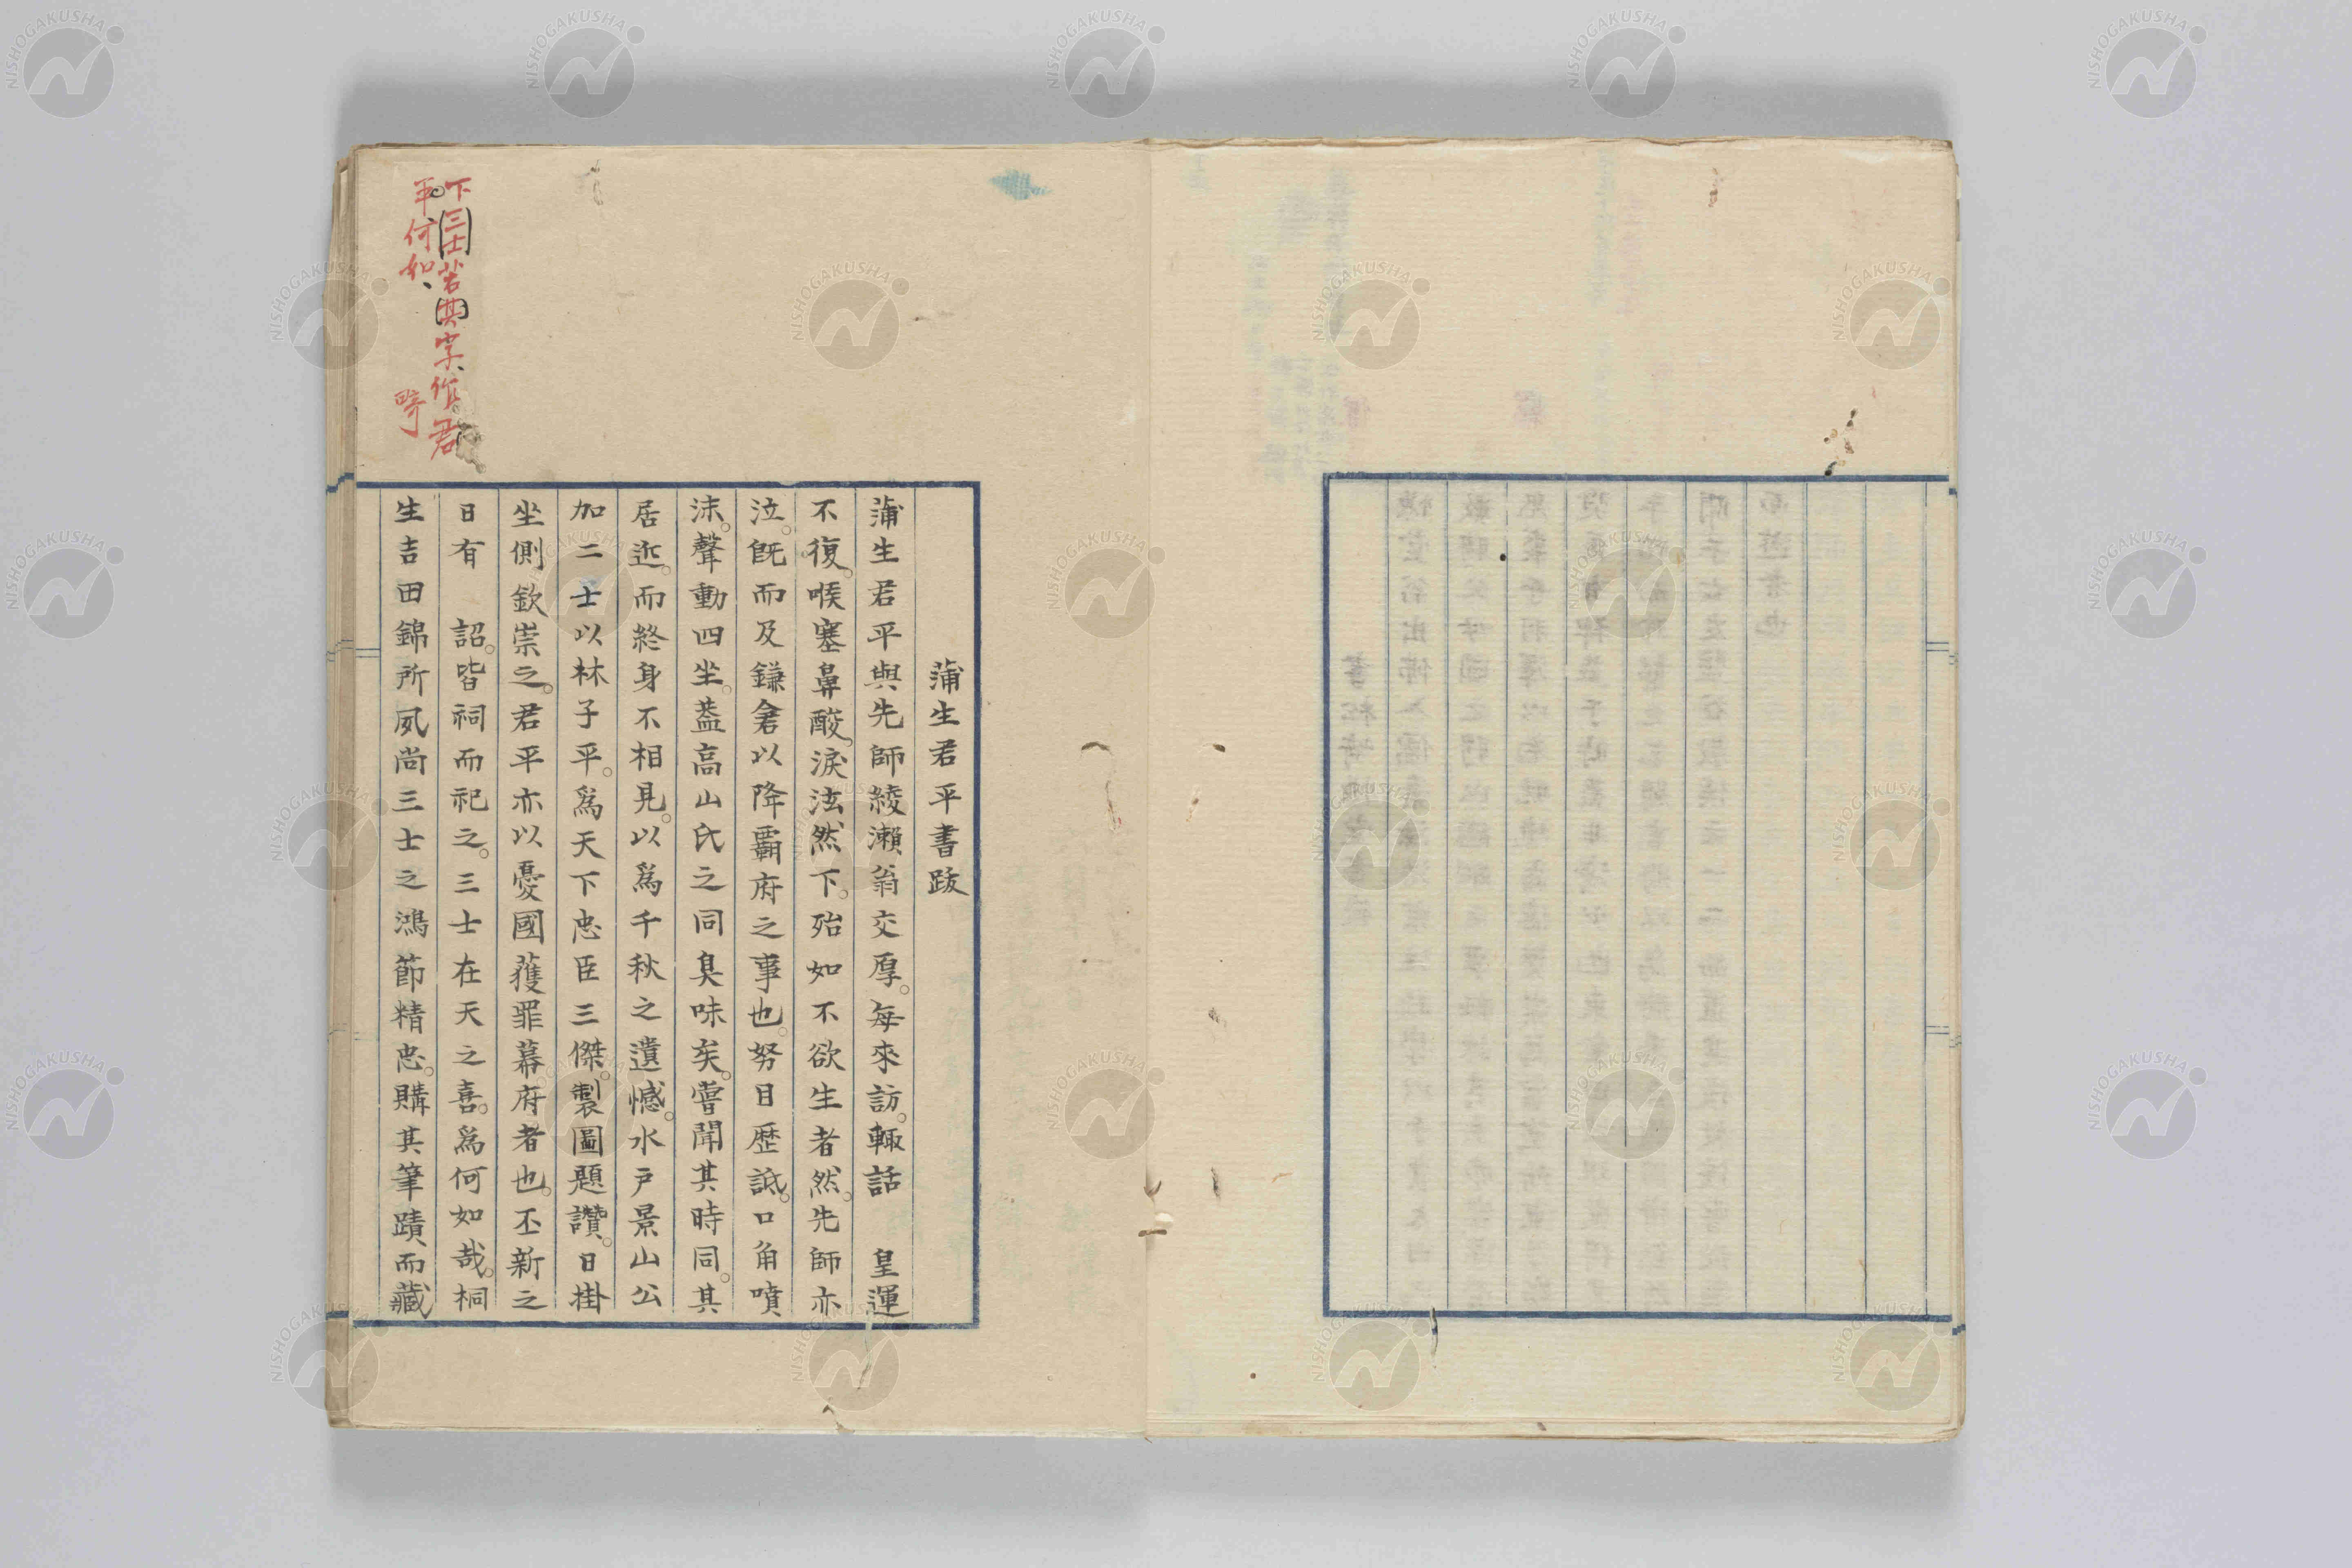 蒲生君平書跋
蒲生君平與先師綾瀬翁交厚。每來訪。輙話　皇運
不復。喉塞鼻酸。淚泫然下。殆如不欲生者然。先師亦
泣。旣而及鎌倉以降覇府之事也。努目歷詆。口角噴
沫。聲動四坐。葢高山氏之同臭味矣。嘗聞其時同。其
居近。而終身不相見。以爲千秋之遺憾。水戶景山公
加二士以林子平。爲天下忠臣三傑。製圖題讚。日掛
坐側欽崇之。君平亦以憂國獲罪幕府者也。丕新之
日有　詔。皆祠而祀之。三士在天之喜。爲何如哉。桐
生吉田錦所夙尚三士之鴻節精忠。購其筆蹟而藏
下三士若其字、作君
平。何如、
畸
NISHOGAKUSHA